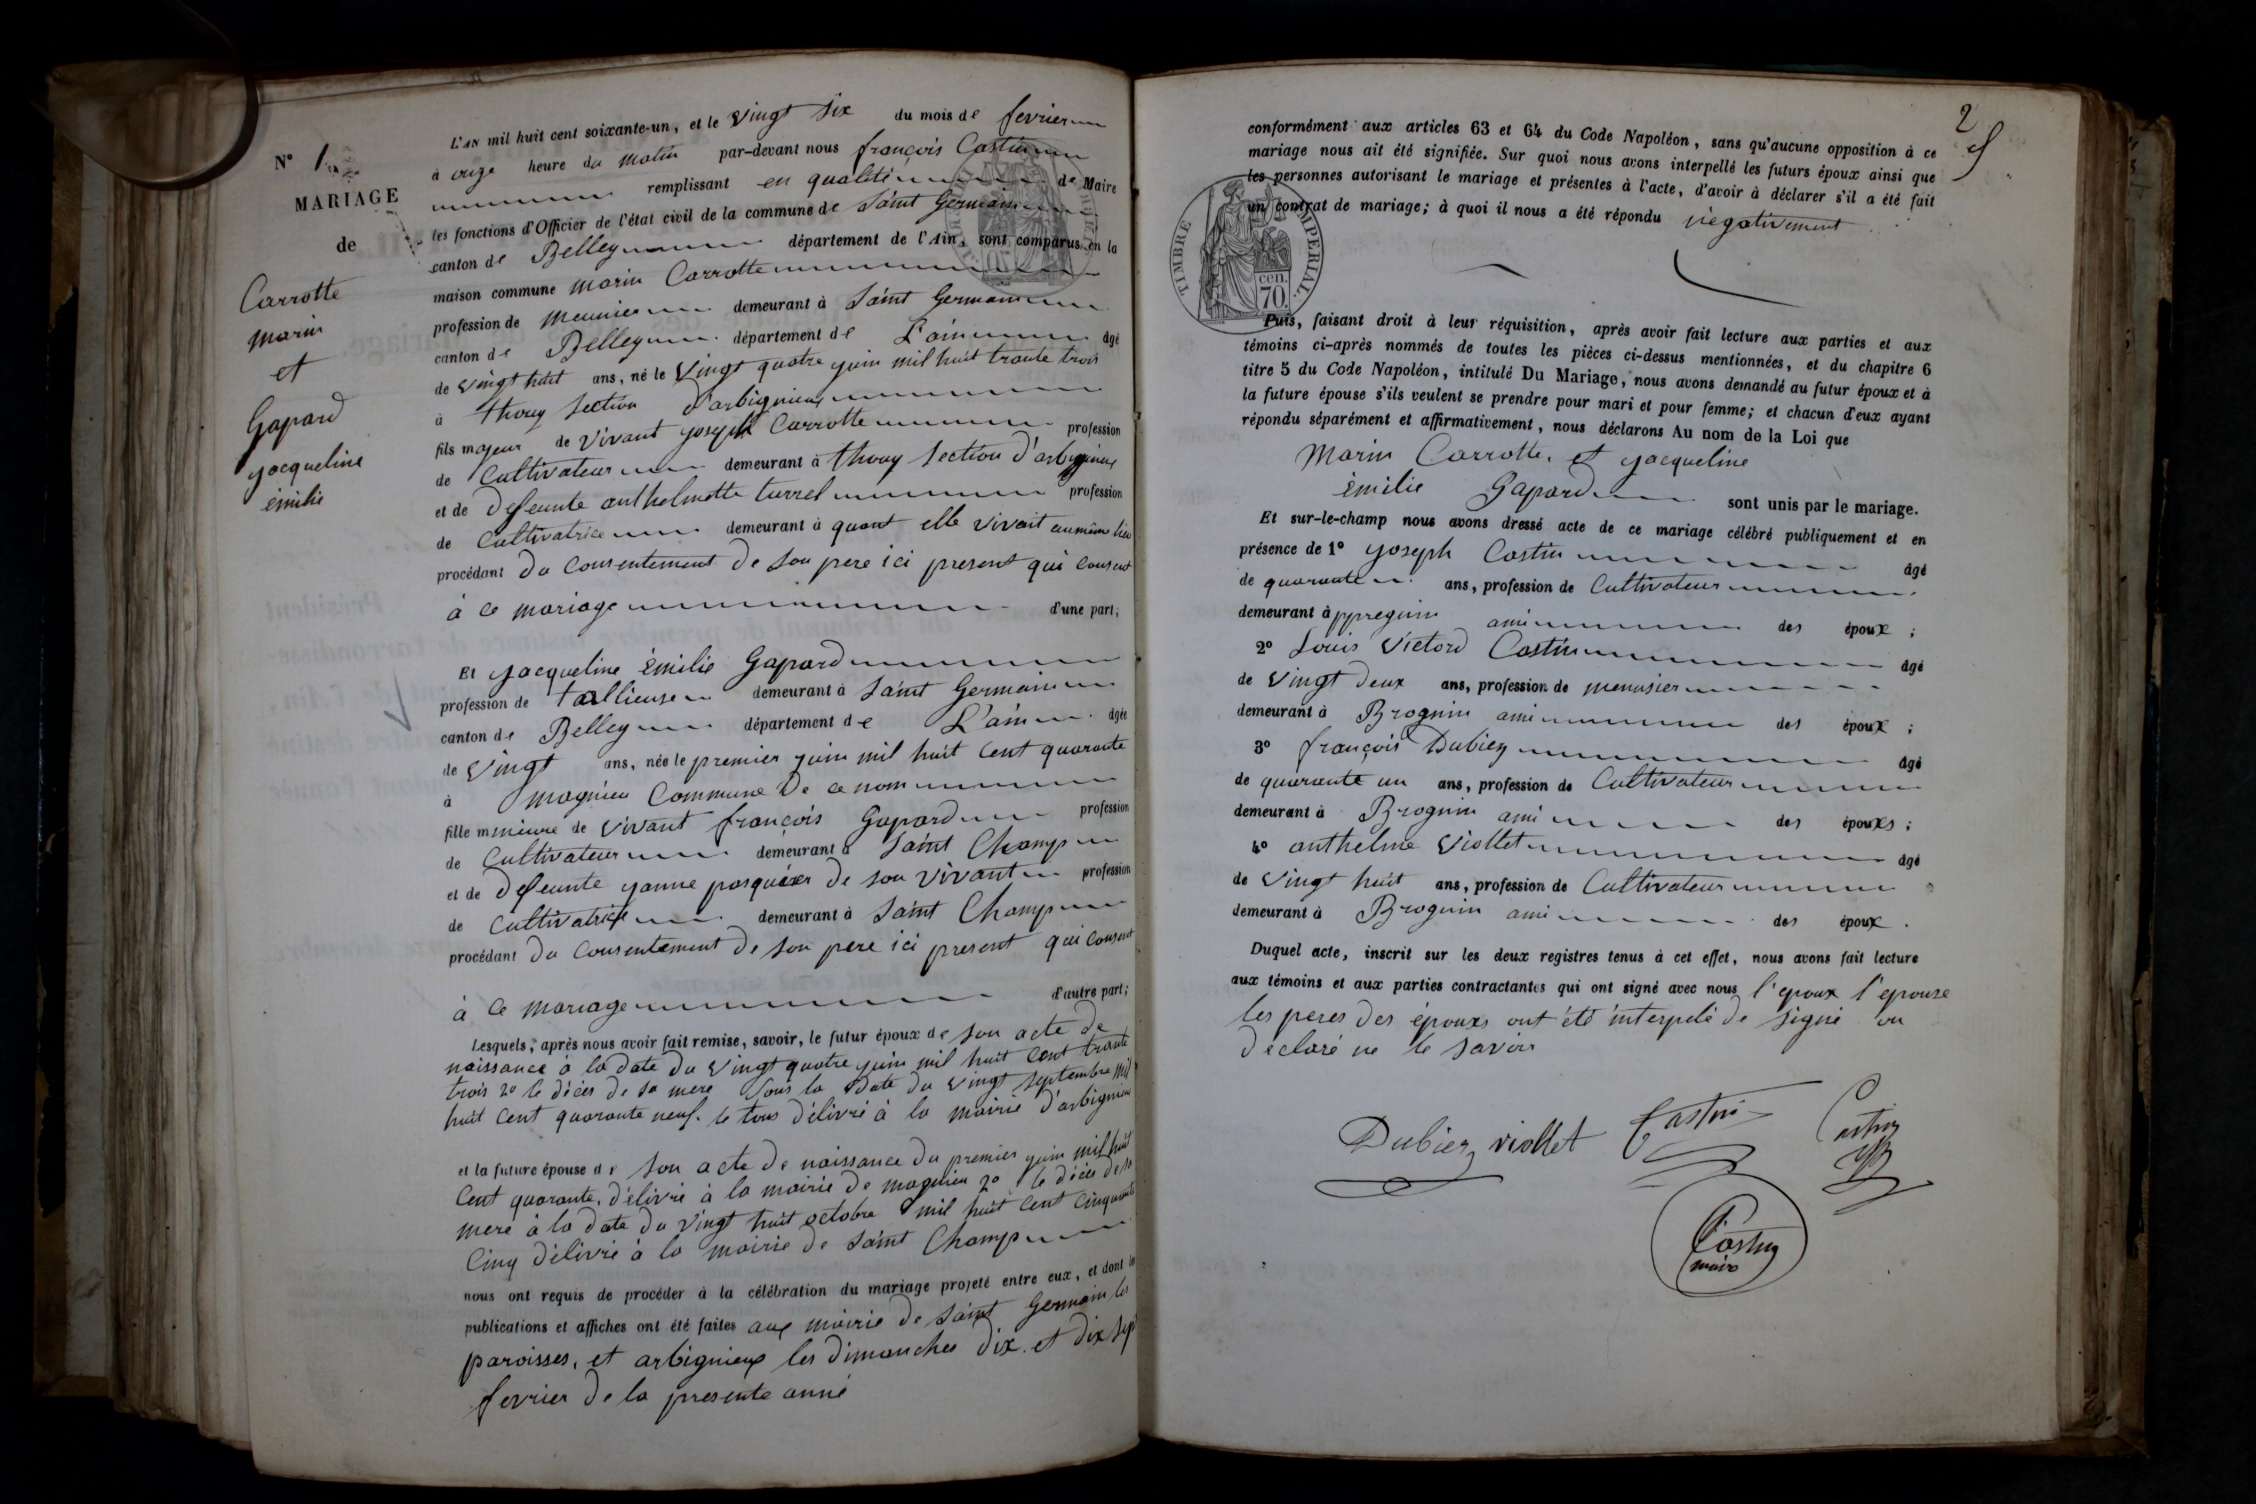 N° 1
MARIAGE
de
Carrotte
marin
et
Gapard
jacqueline
émilie
L'AN mil huit cent soixante-un, et le vingt six du mois de fevrier
à onze heure du matin par-devant nous françois Castin
remplissant en qualité de Maire
les fonctions d'Officier de l'état civil de la commune de Saint Germain
canton de Belley département de l'Ain, sont comparus en la
maison commune marin Carrotte
profession de meunier demeurant à Saint Germain
canton de Belley département de L'ain âgé
de vingt huit ans, né le vingt quatre juin mil huit trante trois
à thouy section d'arbignieux
fils majeur de vivant joseph Carrotte profession
de Cultivateur demeurant à thouy section d'arbignieux
et de defeunte anthelmette turrel profession
de Cultivatrice demeurant à quant elle vivait au même lieu
procédant du consentement de son pere ici present qui consent
à ce mariage d'une part;
Et jacqueline émilie Gapard
profession de taillieuse demeurant à Saint Germain
canton de Belley département de L'ain âgée
de vingt ans, née le premier juin mil huit cent quarante
à magnieu Commune de ce nom
fille mineure de vivant françois Gapard profession
de Cultivateur demeurant à Saint Champ
et de defeunte janne pasquier de son vivant profession
de Cultivatrice demeurant à Saint Champ
procédant du consentement de son pere ici present qui consent
à ce mariage d'autre part;
Lesquels, après nous avoir fait remise, savoir, le futur époux de son acte de
naissance à la date du vingt quatre juin mil huit cent trante
trois 2° le décès de sa mere sous la date du vingt septembre mil
huit cent quarante neuf. le tous délivré à la mairie d'arbignieu
et la future épouse de son acte de naissance du premier juin mil huit
cent quarante, délivré à la mairie de magnieu 2° le décès de sa
mere à la date du vingt huit octobre mil huit cent cinquante
cinq délivré à la mairie de Saint Champ
nous ont requis de procéder à la célébration du mariage projeté entre eux, et dont les
publications et affiches ont été faites aux mairie de Saint Germain les
paroisses, et arbignieux les dimanches dix et dix sept
fevrier de la presente anné
2
conformément aux articles 63 et 64 du Code Napoléon, sans qu'aucune opposition à ce
mariage nous ait été signifiée. Sur quoi nous avons interpellé les futurs époux ainsi que
les personnes autorisant le mariage et présentes à l'acte, d'avoir à déclarer s'il a été fait
un contrat de mariage; à quoi il nous a été répondu négativement
TIMBRE IMPERIAL.
cen.
70
Puis, faisant droit à leur réquisition, après avoir fait lecture aux parties et aux
témoins ci-après nommés de toutes les pièces ci-dessus mentionnées, et du chapitre 6
titre 5 du Code Napoléon, intitulé Du Mariage, nous avons demandé au futur époux et à
la future épouse s'ils veulent se prendre pour mari et pour femme; et chacun d'eux ayant
répondu séparément et affirmativement, nous déclarons Au nom de la Loi que
Marin Carrotte, et jacqueline
émilie Gapard sont unis par le mariage.
Et sur-le-champ nous avons dressé acte de ce mariage célébré publiquement et en
présence de 1° joseph Castin âgé
de quarante ans, profession de Cultivateur
demeurant à ami des époux ;
2° Louis Victord Castin âgé
de vingt deux ans, profession de menusier
demeurant à Brognin ami des époux ;
3° françois Dubiez âgé
de quarante un ans, profession de Cultivateur
demeurant à Brognin ami des époux ;
4° anthelme Viollet âgé
de vingt huit ans, profession de Cultivateur
demeurant à Brognin ami des époux .
Duquel acte, inscrit sur les deux registres tenus à cet effet, nous avons fait lecture
aux témoins et aux parties contractantes qui ont signé avec nous l'epoux l'epouse
les peres des époux ont été interpelé de signé on
declaré ne le savoir
Dubiez viollet Castin Castin
Castin
maire